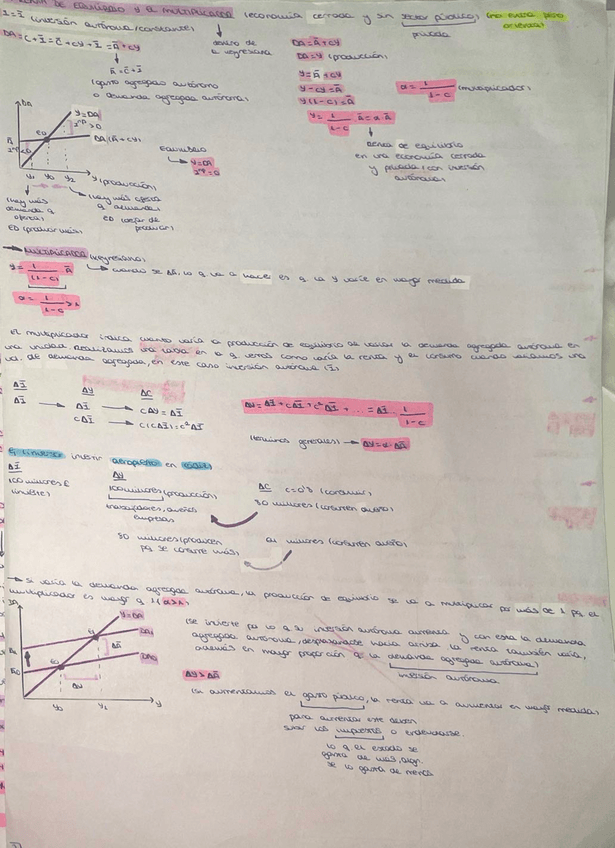 DE EQUILIBRIO Y EL MULTIPLICADOR (economía cerrada y sin sector público)
I = Ī (inversión autónoma/constante)
privada
DA = C + Ī = C̄ + cY + Ī = Ā + cY
dentro de
la keynesiana
Ā = C̄ + Ī
(gasto agregado autónomo
o demanda agregada autónoma)
DA = Ā + cY
DA = Y (producción)
Y = Ā + cY
Y - cY = Ā
Y(1-c) = Ā
Y = 1/(1-c) Ā = α · Ā
α = 1/(1-c) (multiplicador)
renta de equilibrio
en una economía cerrada
y privada (con inversión
autónoma)
DA
Y = DA
DA (Ā + cY)
E0
Y1 Y0 Y2 Y (producción)
equilibrio
Y = DA
(hay más
demanda q
oferta)
(producir más)
(hay más oferta
q demanda)
dejar de
producir
MULTIPLICADOR (keynesiano)
Y = 1/(1-c) Ā
cuando se ΔĀ, lo q va a hacer es q la Y varíe en mayor medida
α = 1/(1-c) > 1
El multiplicador indica cuánto varía la producción de equilibrio al variar la demanda agregada autónoma en
una unidad. Realizamos una tabla en la q vemos como varía la renta y el consumo cuando variamos una
ud. de demanda agregada, en este caso inversión autónoma (Ī)
ΔĪ ΔY ΔC
ΔĪ → ΔĪ → cΔY = ΔĪ
cΔĪ → c(cΔĪ) = c²ΔĪ
ΔY = ΔĪ + cΔĪ + c²ΔĪ + ... = ΔĪ · 1/(1-c)
(términos generales) → ΔY = α · ΔĀ
invertir aeropuerto en
ΔĪ
100 millones €
ΔY
100 millones (producción)
trabajadores, dueños
empresas
ΔC c = 0'8 (consumo)
80 millones (consumen dueño)
80 millones (producen
pq se consume más)
64 millones (consumen dueño)
Si varía la demanda agregada autónoma, la producción de equilibrio se va a multiplicar por más de 1 pq el
multiplicador es mayor q 1 (α > 1)
Y = DA
DA1
DA0
ΔĀ
ΔY
Y0 Y1 Y
(se invierte por lo q la inversión autónoma aumenta y con esta la demanda
agregada autónoma, desplazándose hacia arriba, la renta también varía,
además en mayor proporción q la demanda agregada autónoma)
inversión autónoma
ΔY > ΔĀ
(si aumentamos el gasto público, la renta va a aumentar en mayor medida)
para aumentar este deben
subir los impuestos o endeudarse.
lo q el estado se
gasta de más,
se lo gasta de menos